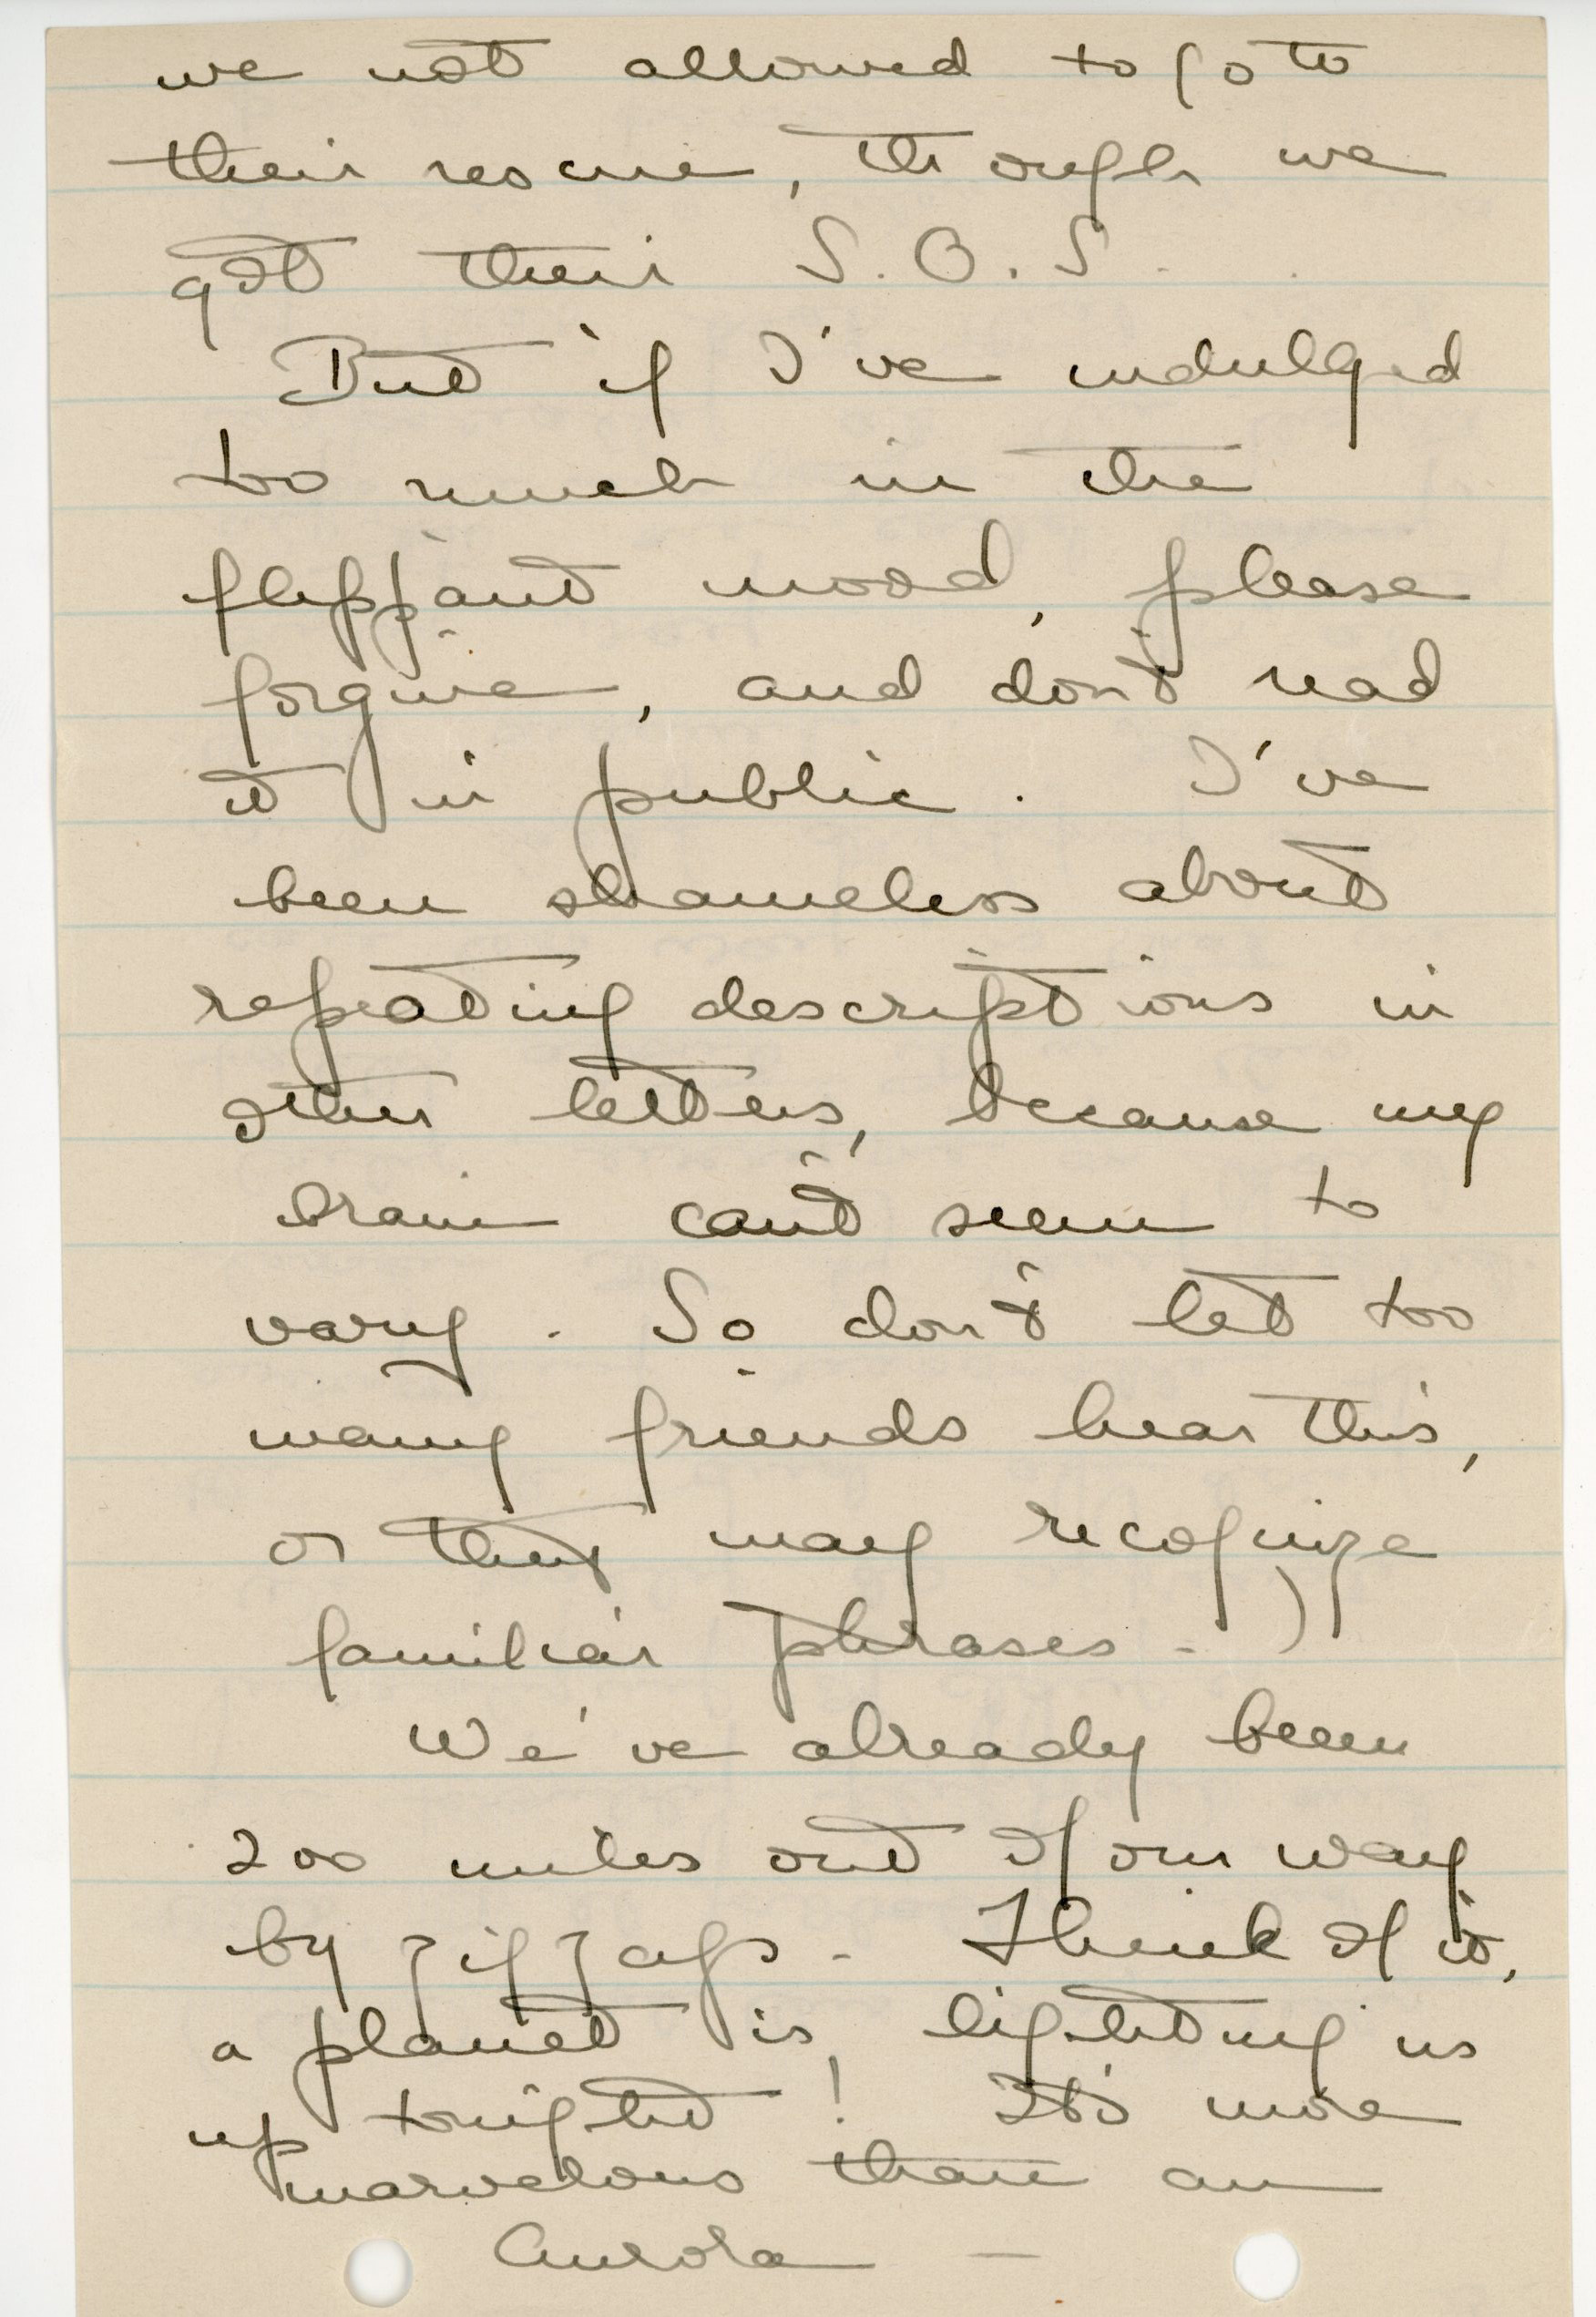 we not allowed to go to
their rescue, though we
got their S.O.S.
But if I've indulged
too much in the
flippant mood, please
forgive, and don't read
it in public. I've
been shameless about
repeating descriptions in
other letters, because my
brain can't seem to
vary. So don't let too
many friends hear this,
or they may recognize
familiar phrases.)
We've already been
200 miles out of our way
by zigzags. Think of it,
a planet is lighting us
up tonight! It's more
marvelous than an
Aurora —